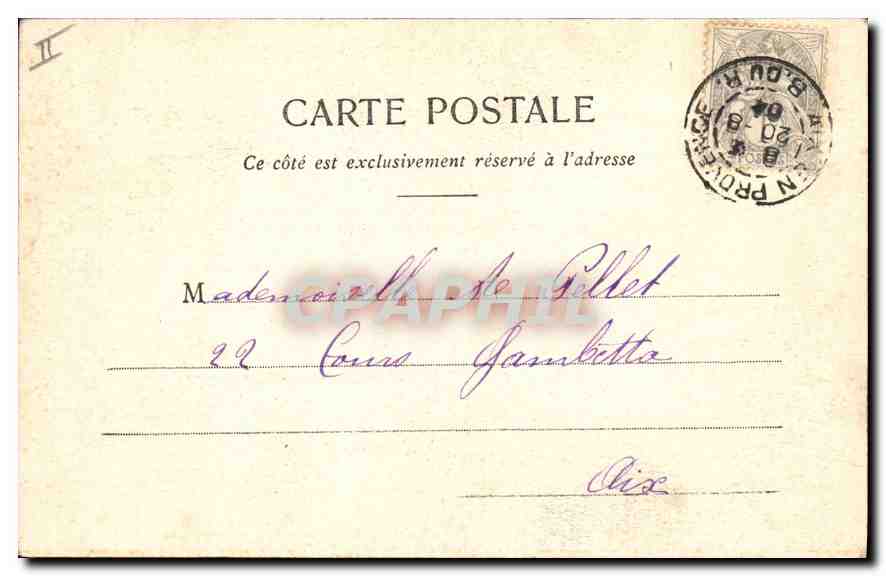 II
CARTE POSTALE
Ce côté est exclusivement réservé à l'adresse
Mademoiselle de Pellet
22 Cours Gambetta
Aix
AIX EN PROVENCE
B. DU R.
8
20 -8
04
CPARAMA
CPAPHIL